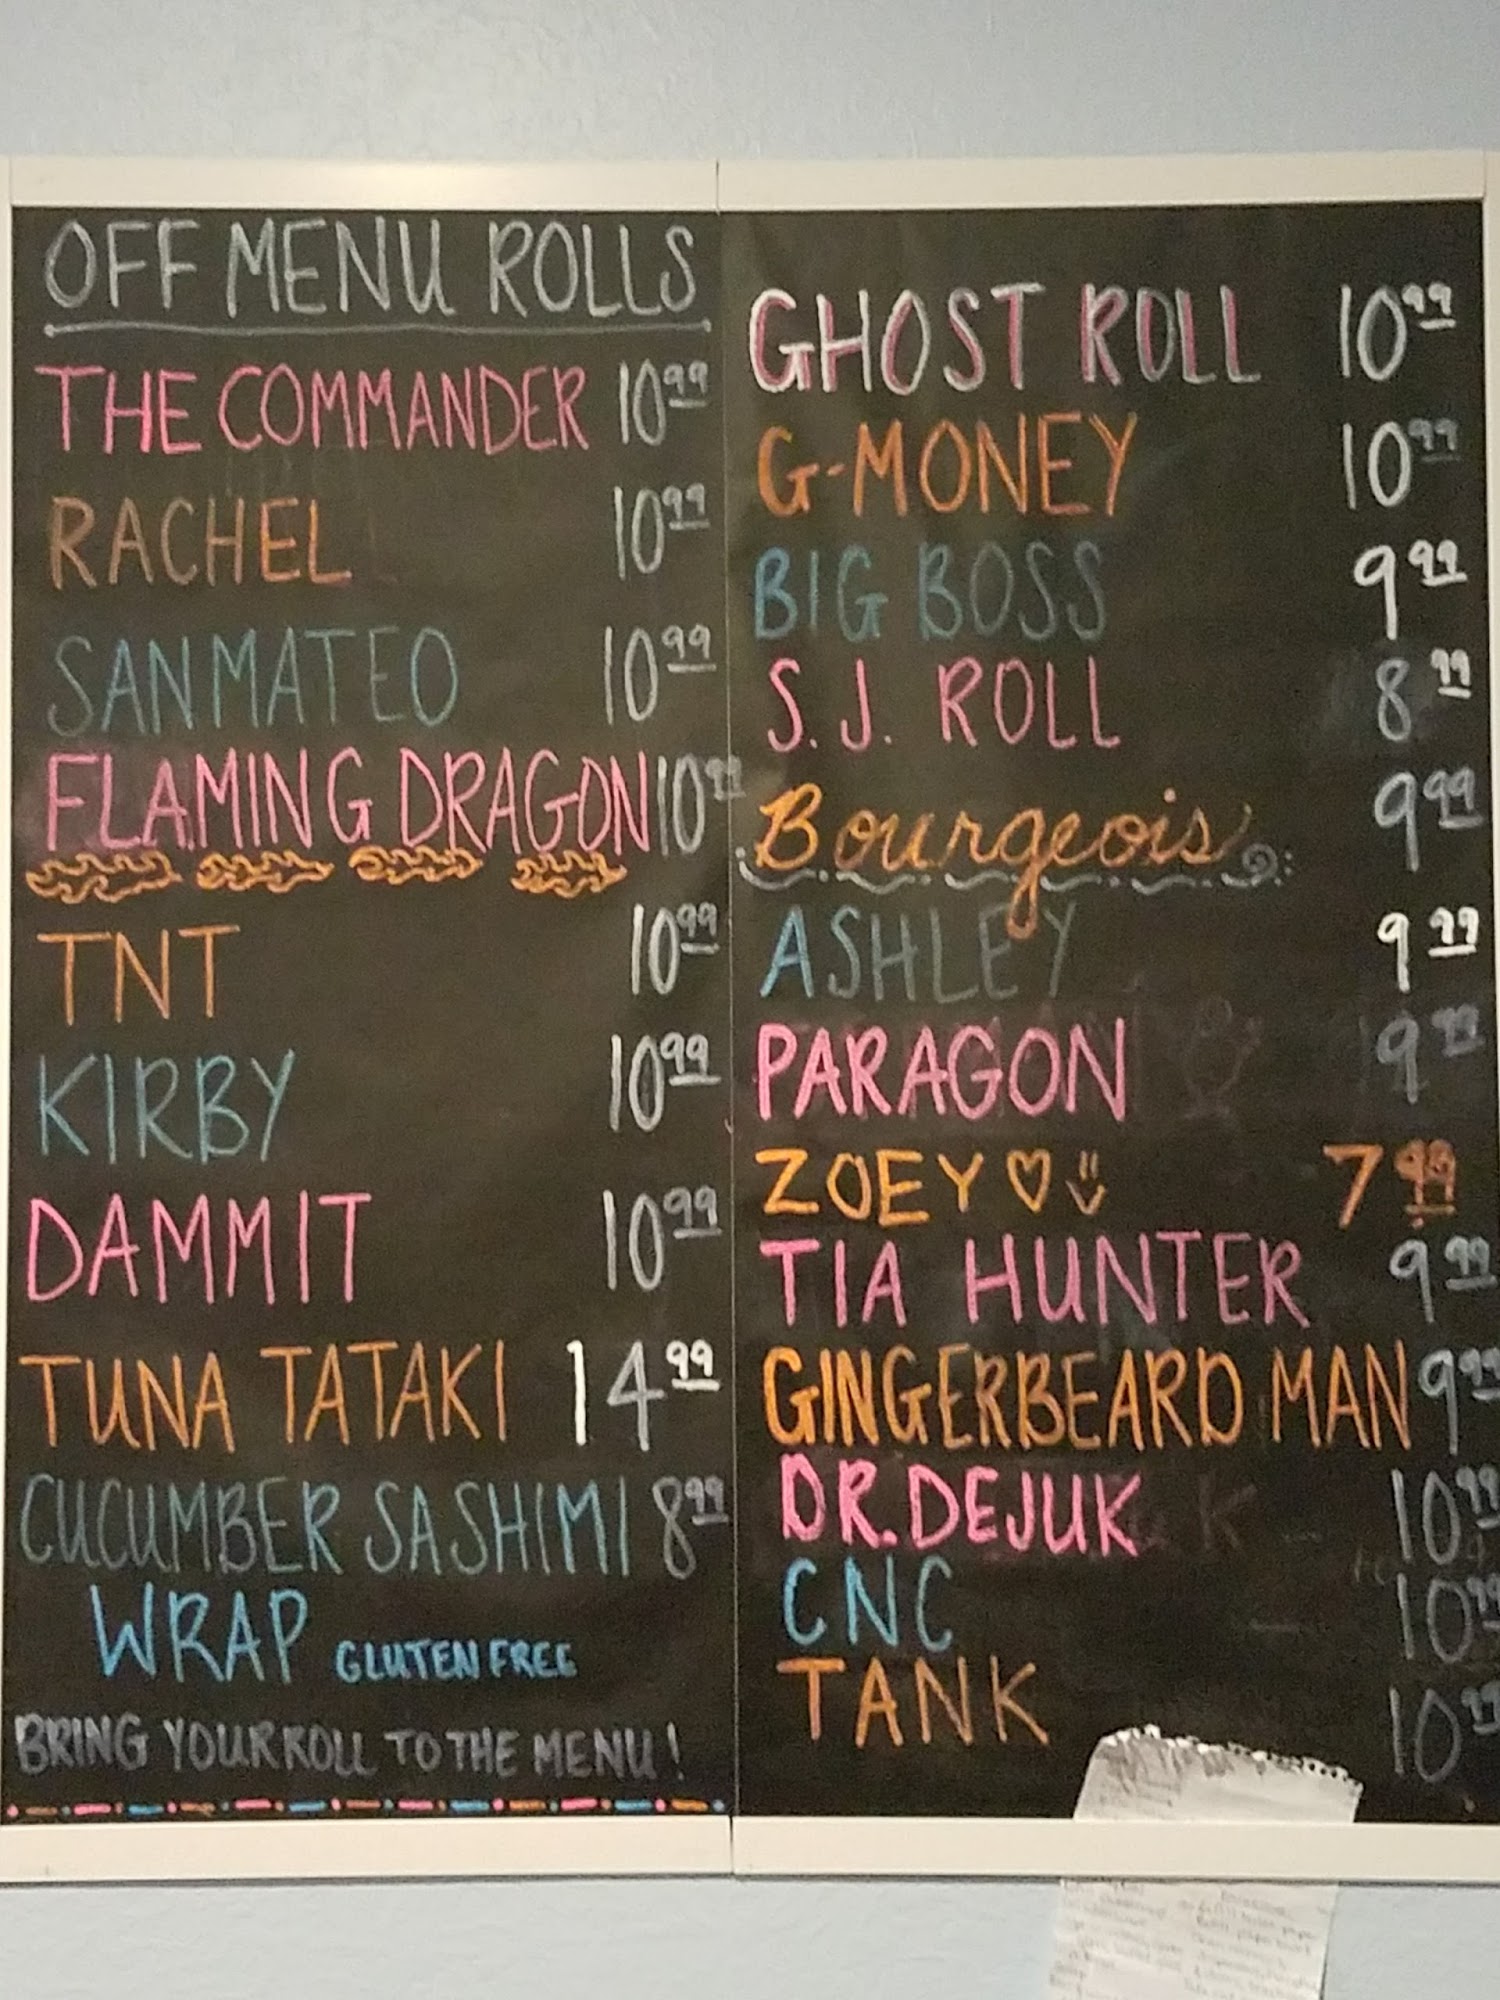 OFF MENU ROLLS
THE COMMANDER 10.99
RACHEL 10.99
SAN MATEO 10.99
FLAMING DRAGON 10.99
TNT 10.99
KIRBY 10.99
DAMMIT 10.99
TUNA TATAKI 14.99
CUCUMBER SASHIMI 8.99
WRAP GLUTEN FREE
BRING YOUR ROLL TO THE MENU!
GHOST ROLL 10.99
G-MONEY 10.99
BIG BOSS 9.99
S.J. ROLL 8.99
Bourgeois 9.99
ASHLEY 9.99
PARAGON 9.99
ZOEY♡ 7.99
TIA HUNTER 9.99
GINGERBEARD MAN 9.99
DR. DEJUK 10.99
CNC 10.99
TANK 10.99